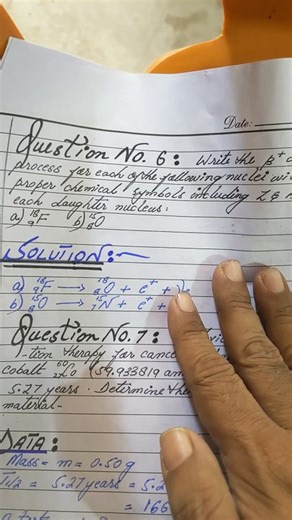 Date:
Question No. 6: Write the β+ d
process for each of the following nuclei wi
proper chemical symbols including Z &
each daughter nucleus.
a) ¹⁸₉F b) ¹⁵₈O
SOLUTION:-
a) ¹⁸₉F → ¹⁸₈O + e⁺ +
b) ¹⁵₈O → ¹⁵₇N + e⁺ +
Question No. 7:
-tion therapy for cance
cobalt ⁶⁰₂₇Co (59.933819 am
5.27 years. Determine the
material-
DATA:
Mass = m = 0.50g
T1/2 = 5.27 years = 5.2
= 166